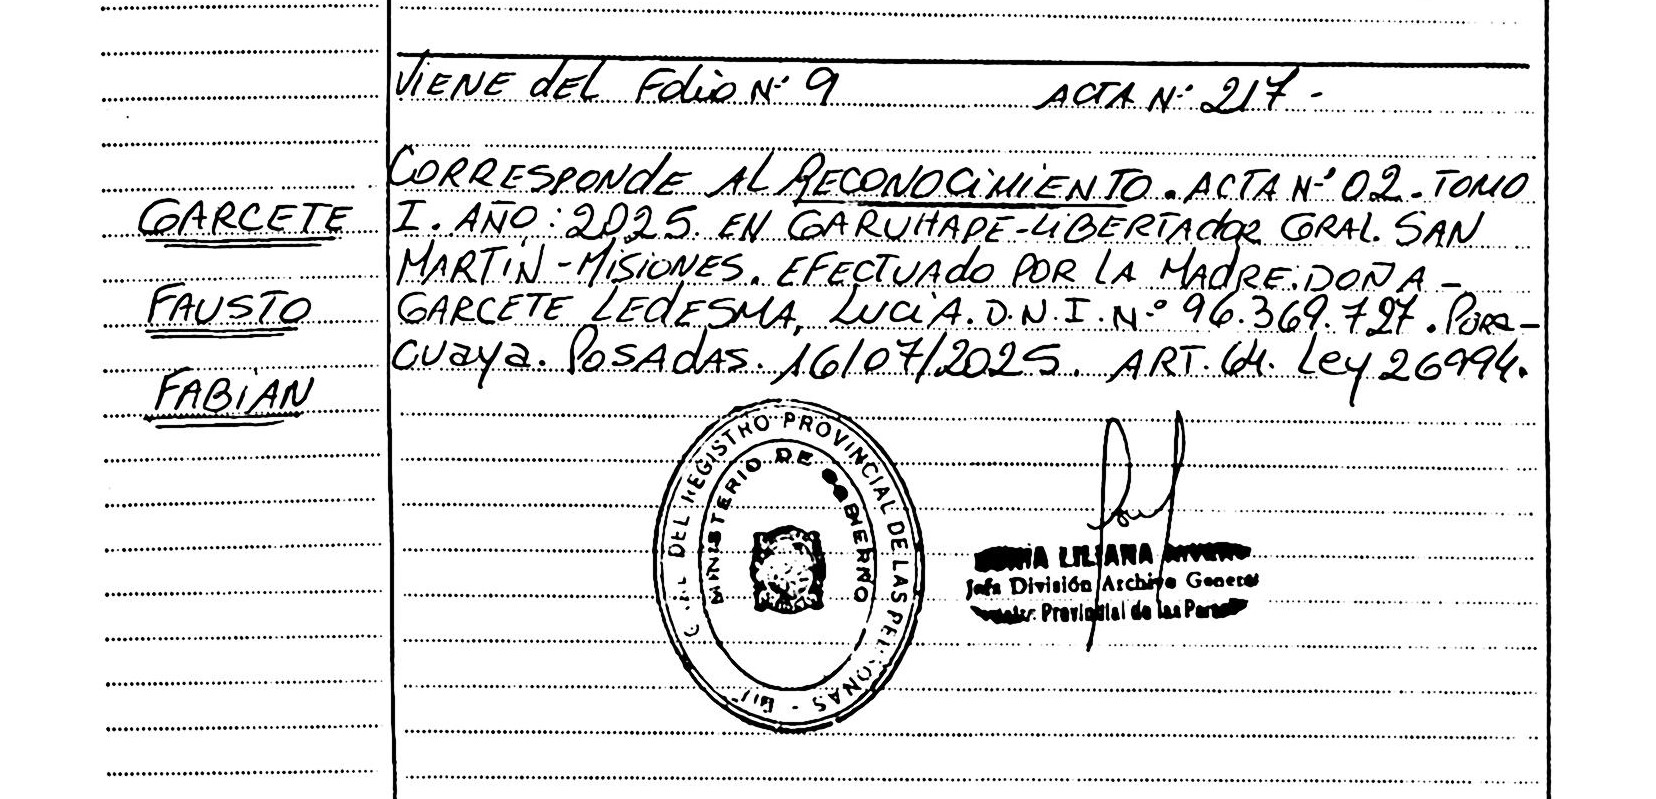 VIENE dEL Folio N° 9 ACTA N° 217 -
CORRESPONDE AL RECONOCIMIENTO. ACTA N° 02. TOMO
I. AÑO: 2025. EN GARUHAPE-LIBERTADOR GRAL. SAN
MARTÍN - MISIONES. EFECTUADO POR LA MADRE: DOÑA -
GARCETE LEDESMA, LUCIA. D.N.I. N° 96.369.727. PARA-
GUAYA. POSADAS. 16/07/2025. ART. 64. Ley 26994.
GARCETE
FAUSTO
FABIÁN
DEL REGISTRO PROVINCIAL DE LAS PERSONAS
MINISTERIO DE GOBIERNO
LILIANA
Jefa División Archivo General
Provincial de las